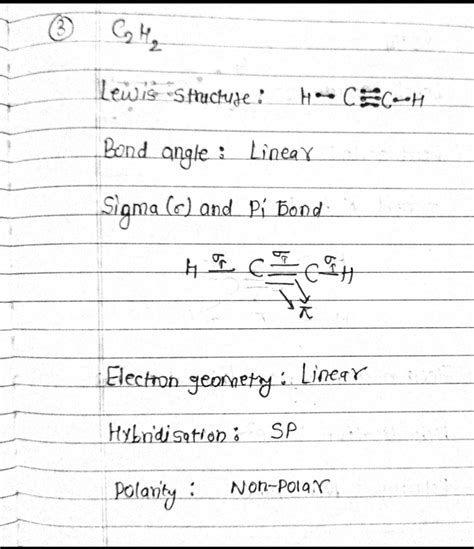 ③ C₂H₂
Lewis Structure: H–C≡C–H
Bond angle: Linear
Sigma (σ) and Pi Bond
H σ C σ C σ H
π
Electron geometry: Linear
Hybridisation: SP
Polarity: Non-Polar